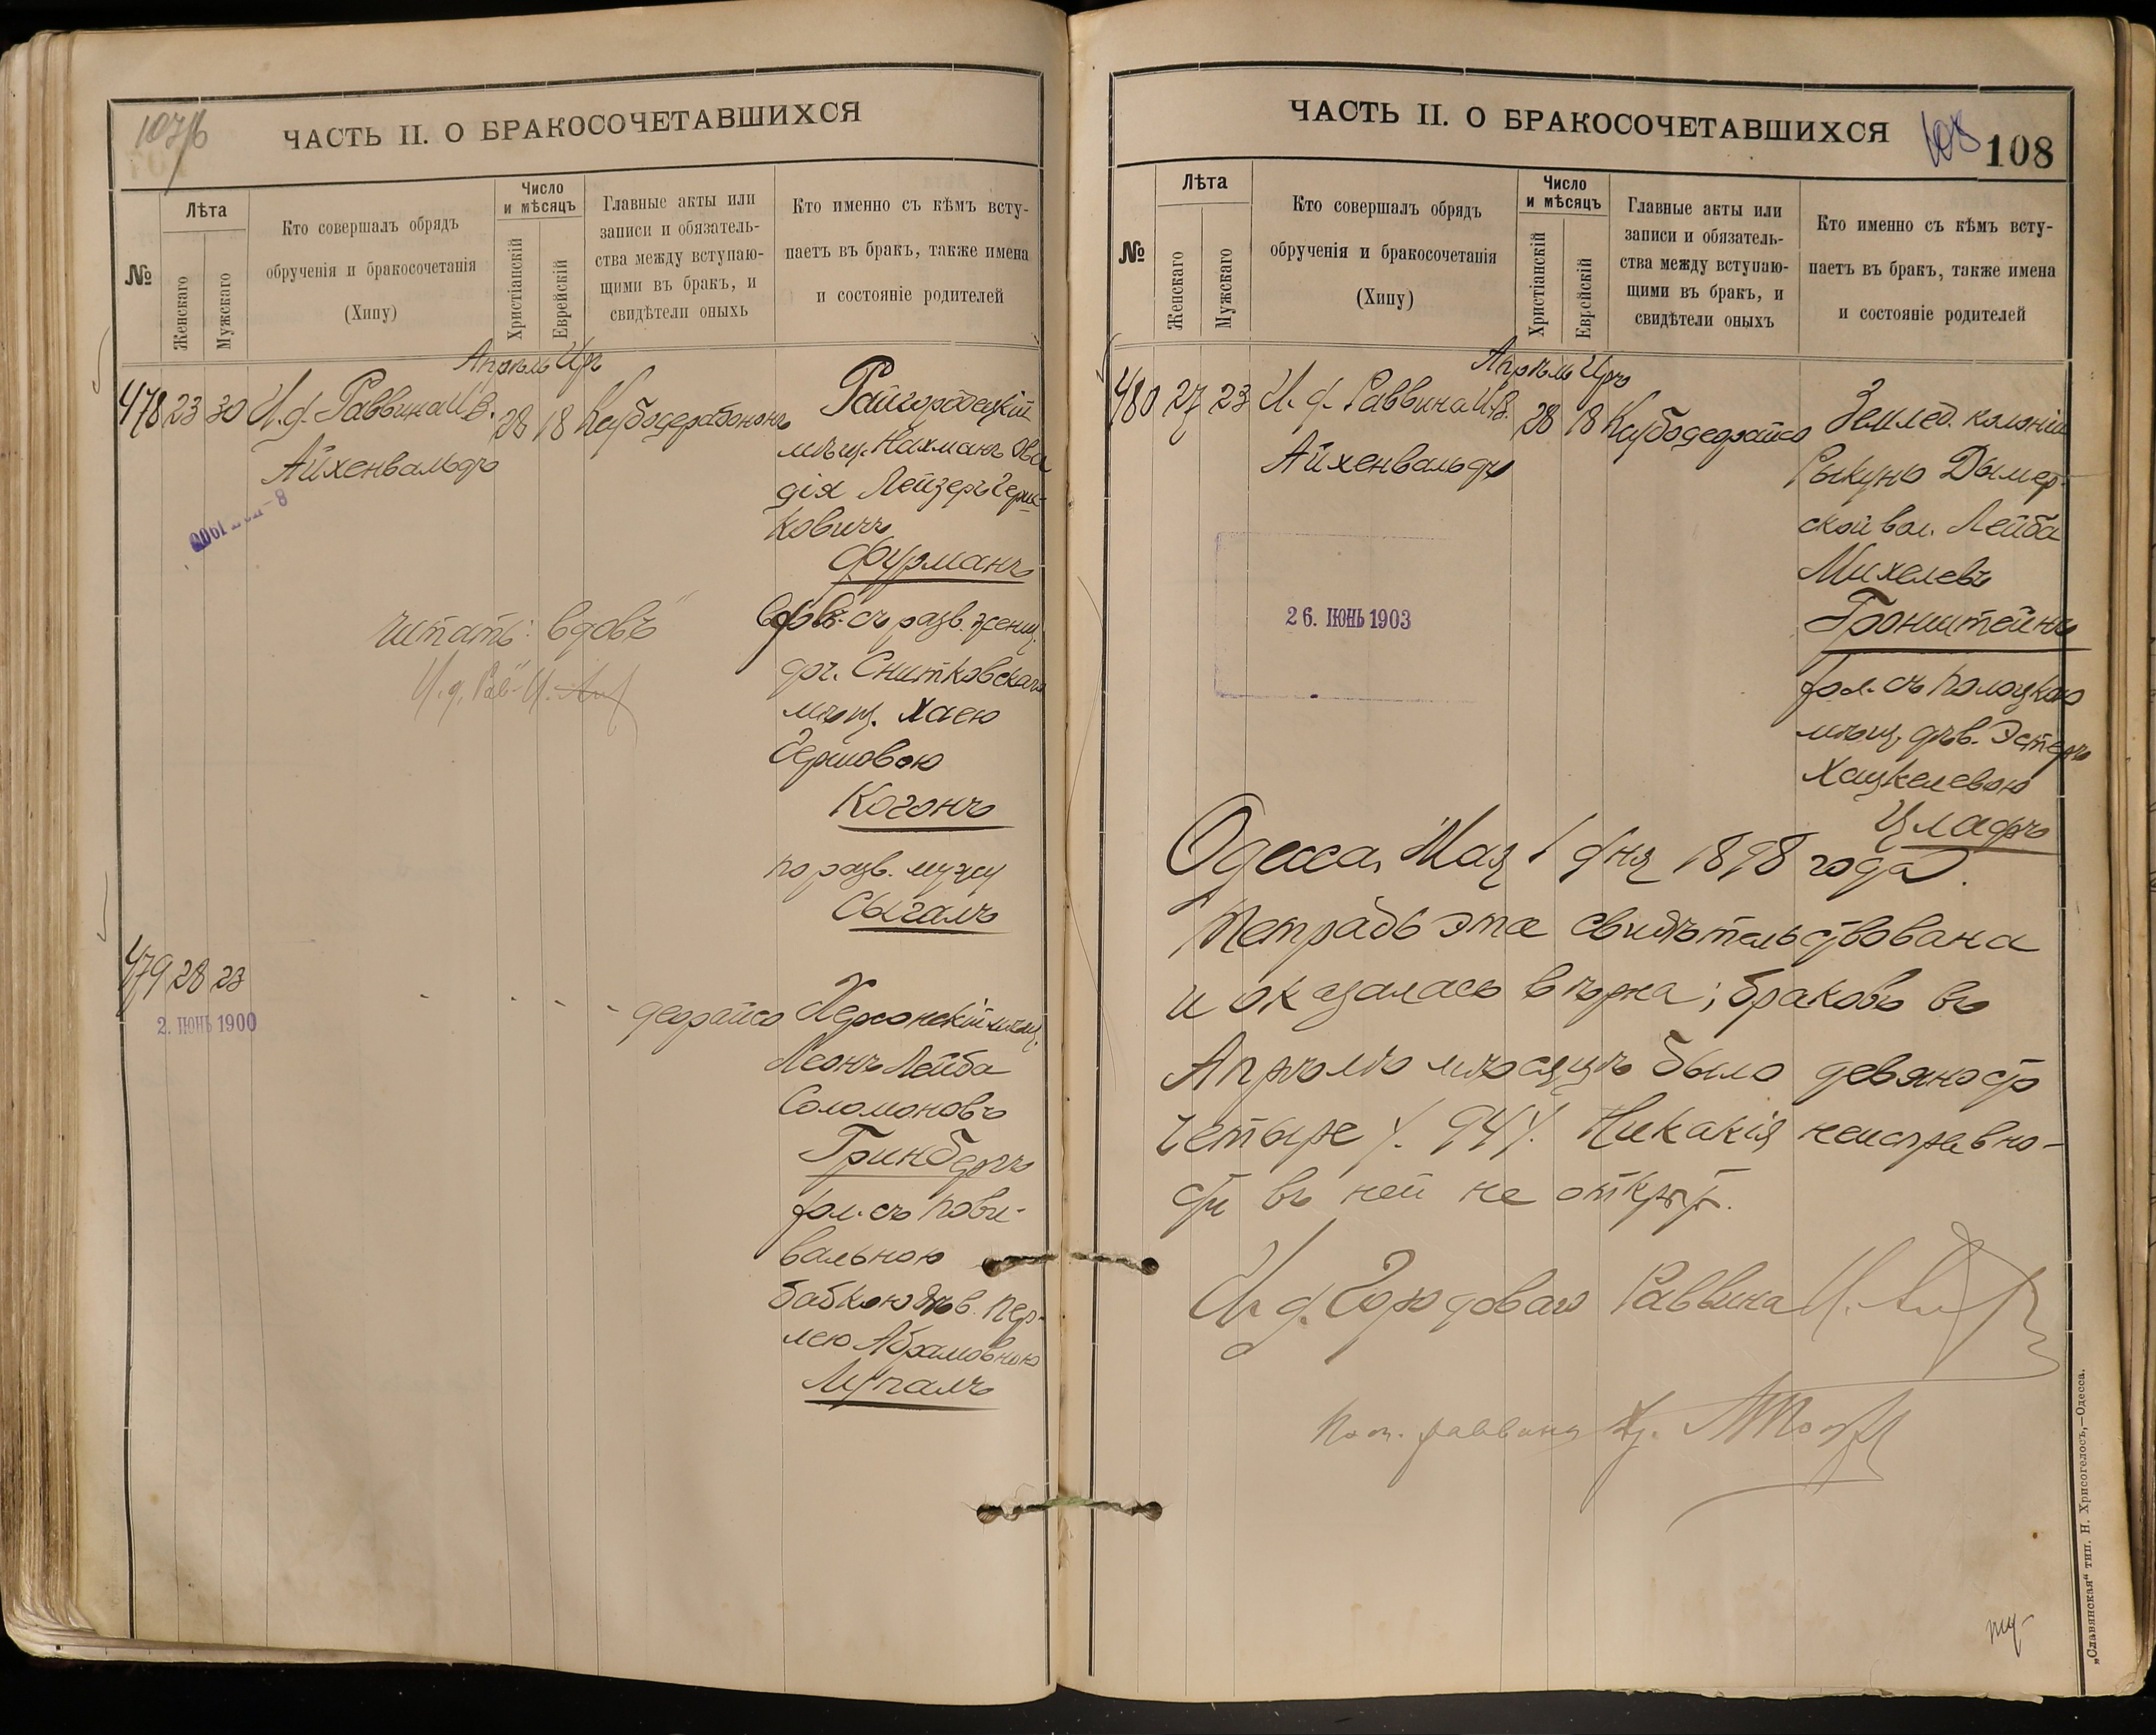 107/б
ЧАСТЬ II. О БРАКОСОЧЕТАВШИХСЯ
№
Лѣта
Женскаго
Мужскаго
Кто совершалъ обрядъ
обрученія и бракосочетанія
(Хипу)
Число
и мѣсяцъ
Христіанскій
Еврейскій
Главные акты или
записи и обязатель-
ства между вступаю-
щими въ бракъ, и
свидѣтели оныхъ
Кто именно съ кѣмъ всту-
паетъ въ бракъ, также имена
и состояніе родителей
Апрѣль Иръ
478 23 30 И. д. Раввина И. В. 28 18
Айхенвальдъ
Райгородецкій
мѣщ. Нахманъ Ова
дія Лейзеръ Герш-
ковичъ
Фурманъ
вдов. съ разв. женщ.
читать: "вдовъ"
И. д. Рав. И.
Снитковскаго
мѣщ. Хаею
Гершовою
Когонъ
по разв. мужу
Сыгалъ
479 28 23
2. ІЮНЬ 1900
- - - - деорайсо
Херсонскій мѣщ.
Леонъ Лейба
Соломоновъ
Гринбергъ
хол. съ пови-
вальною
бабкою дѣв. Пер-
лею Абрамовною
Лупалъ
ЧАСТЬ II. О БРАКОСОЧЕТАВШИХСЯ
108 108
№
Лѣта
Женскаго
Мужскаго
Кто совершалъ обрядъ
обрученія и бракосочетанія
(Хипу)
Число
и мѣсяцъ
Христіанскій
Еврейскій
Главные акты или
записи и обязатель-
ства между вступаю-
щими въ бракъ, и
свидѣтели оныхъ
Кто именно съ кѣмъ всту-
паетъ въ бракъ, также имена
и состояніе родителей
Апрѣль Иръ
480 27 23 И. д. Раввина И. В. 28 18
Айхенвальдъ
26. ІЮНЬ 1903
Землед. колоніи
Рыкунь Дымер-
ской вол. Лейба
Михелевъ
Гронштейнъ
хол. съ полоцкою
мѣщ. дѣв. Эстеръ
Хацкелевою
Цлафъ
Одесса, Мая 1 дня 1898 года.
Тетрадь эта свидѣтельствована
и оказалась вѣрна; браковъ въ
Апрѣлѣ мѣсяцѣ было девяносто
четыре /. 94 /. Никакія неисправно-
сти въ ней не открыт.
И. д. Городоваго Раввина И.
Пом. раввина
„Славянская“ тип. Н. Хрисогелосъ,—Одесса.